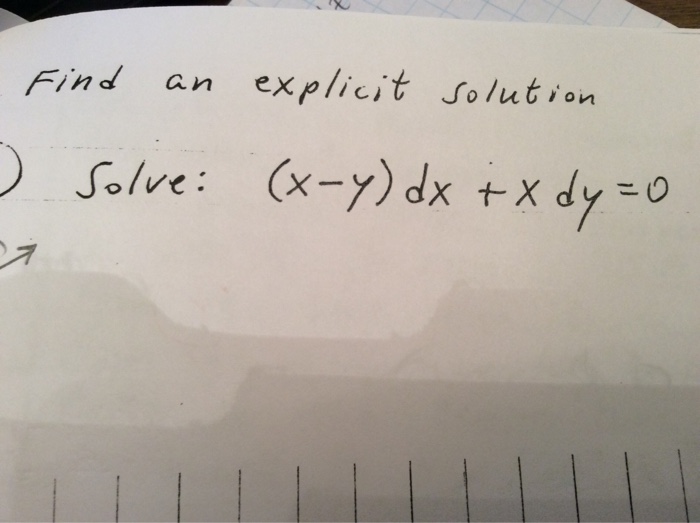 Find an explicit solution
) Solve: (x-y) dx + x dy = 0